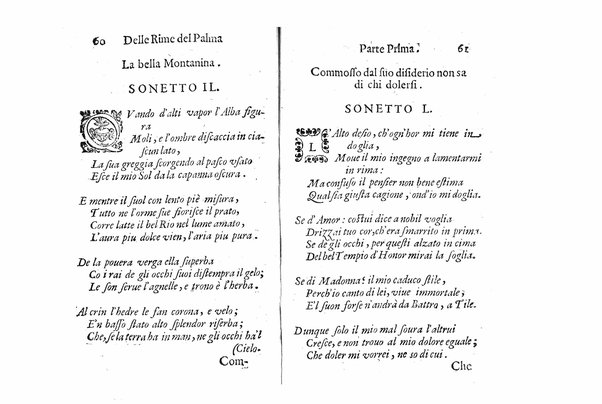 60 Delle Rime del Palma
La bella Montanina.
SONETTO IL.
QVando d'alti vapor l'Alba figu-
ra
Moli, e l'ombre discaccia in cia-
scun lato,
La sua greggia scorgendo al pasco vsato
Esce il mio Sol da la capanna oscura.
E mentre il suol con lento piè misura,
Tutto ne l'orme sue fiorisce il prato,
Corre latte il bel Rio nel lume amato,
L'aura piu dolce vien, l'aria piu pura.
De la pouera verga ella superba
Co i rai de gli occhi suoi distempra il gelo;
Le son serue l'agnelle, e trono è l'herba.
Al crin l'hedre le fan corona, e velo;
E'n basso stato alto splendor riserba;
Che, se la terra ha in man, ne gli occhi ha'l
(Cielo.
Com-
Parte Prima. 61
Commosso dal suo disiderio non sa
di chi dolersi.
SONETTO L.
L'Alto desio, ch'ogn'hor mi tiene in
doglia,
Moue il mio ingegno a lamentarmi
in rima:
Ma confuso il pensier non bene estima
Qual sia giusta cagione, ond'io mi doglia.
Se d'Amor: costui dice a nobil voglia
Drizzai tuo cor, ch'era smarrito in prima.
Se de gli occhi, per questi alzato in cima
Del bel Tempio d'Honor mirai la soglia.
Se di Madonna: il mio caduco stile,
Perch'io canto di lei, viue immortale;
E'l suon forse n'andrà da Battro, a Tile.
Dunque solo il mio mal soura l'altrui
Cresce, e non trouo al mio dolore eguale;
Che doler mi vorrei, ne so di cui.
Che